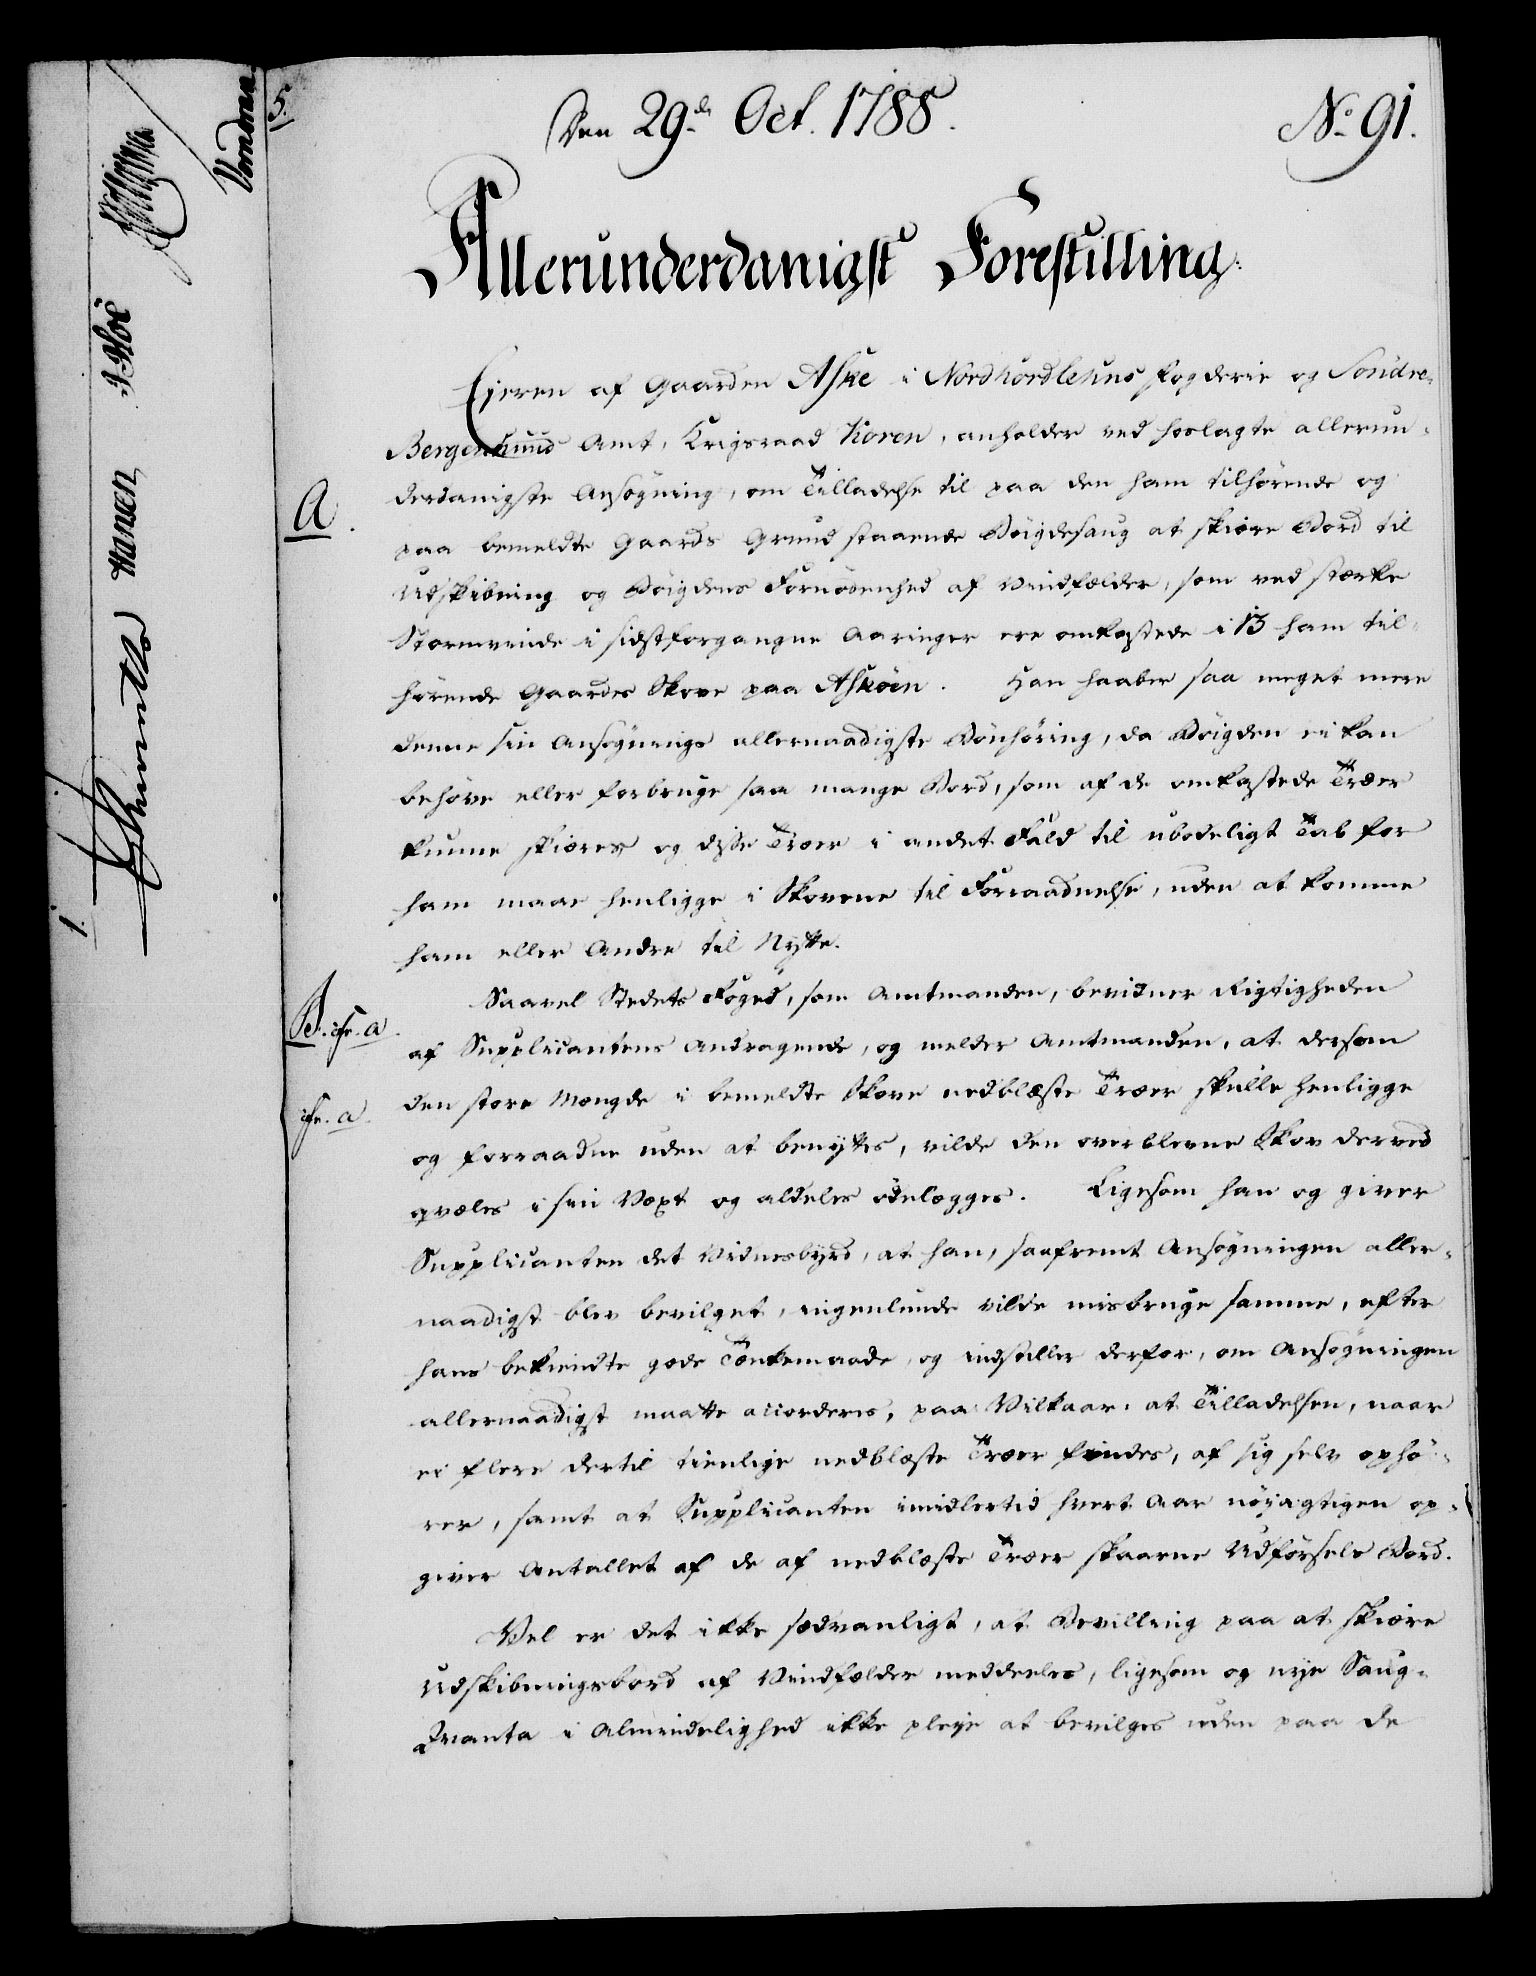 5.
Den 29de Oct. 1788.
No 91.
Allerunderdanigst Forestilling.
Ejeren af Gaarden Aske i Nordhordlehns Fogderie og Söndre-
Bergenhuus Amt, Krigsraad Koren, anholder ved hoslagte allerun-
A.
derdanigste Ansøgning, om Tilladelse til paa den ham tilhørende og
paa bemeldte Gaards Grund staaende Bøigdesaug at skiære Bord til
Udskibning og Bøigdens Fornødenhed af Vindfælder, som ved stærke
Stormvinde i sidstforgangne Aaringer ere omkastede i 13 ham til-
hørende Gaardes Skove paa Askøen. Han haaber saa meget mere
denne sin Ansøgnings allernaadigste Bønhøring, da Bøigden ei kan
behøve eller forbruge saa mange Bord, som af de omkastede Træer
kunne skiæres og disse Træer i andet Fald til ubodeligt Tab for
ham maae henligge i Skovene til Forraadnelse, uden at komme
ham eller Andre til Nytte.
Saavel Stedets Foged, som Amtmanden, bevidner Rigtigheden
B. cfr. a.
af Supplicantens Andragende, og melder Amtmanden, at dersom
cfr. a.
den store Mængde i bemeldte Skove nedblæste Træer skulle henligge
og forraadne uden at benyttes, vilde den overblevne Skov derved
qvæles i sin Væxt og aldeles ødelægges. Ligesom han og giver
Supplicanten det Vidnesbyrd, at han, saafremt Ansøgningen aller-
naadigst blev bevilget, ingenlunde vilde misbruge samme, efter
hans bekiendte gode Tænkemaade, og indstiller derfor, om Ansøgningen
allernaadigst maatte accorderes, paa Vilkaar: at Tilladelsen, naar
ei flere dertil tienlige nedblæste Træer findes, af sig selv ophø-
rer, samt at Supplicanten imidlertid hvert Aar nøjagtigen op-
giver Antallet af de af nedblæste Træer skaarne Udførsels Bord.
Vel er det ikke sædvanligt, at Bevilling paa at skiære
Udskibningsbord af Vindfælder meddeeles, ligesom og nye Saug-
Qvanta i Almindelighed ikke pleje at bevilges uden paa de
Hansen
1.